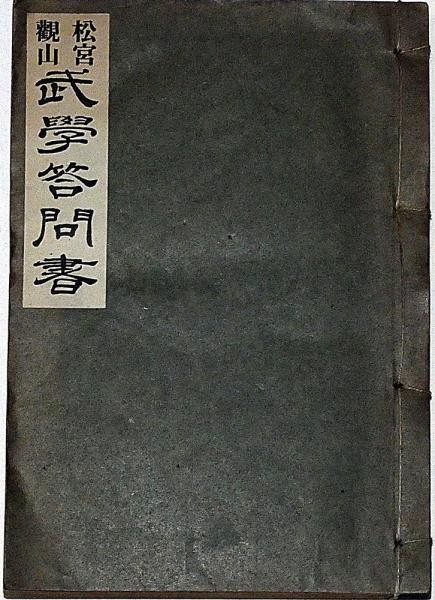 松宮
觀山
武學答問書